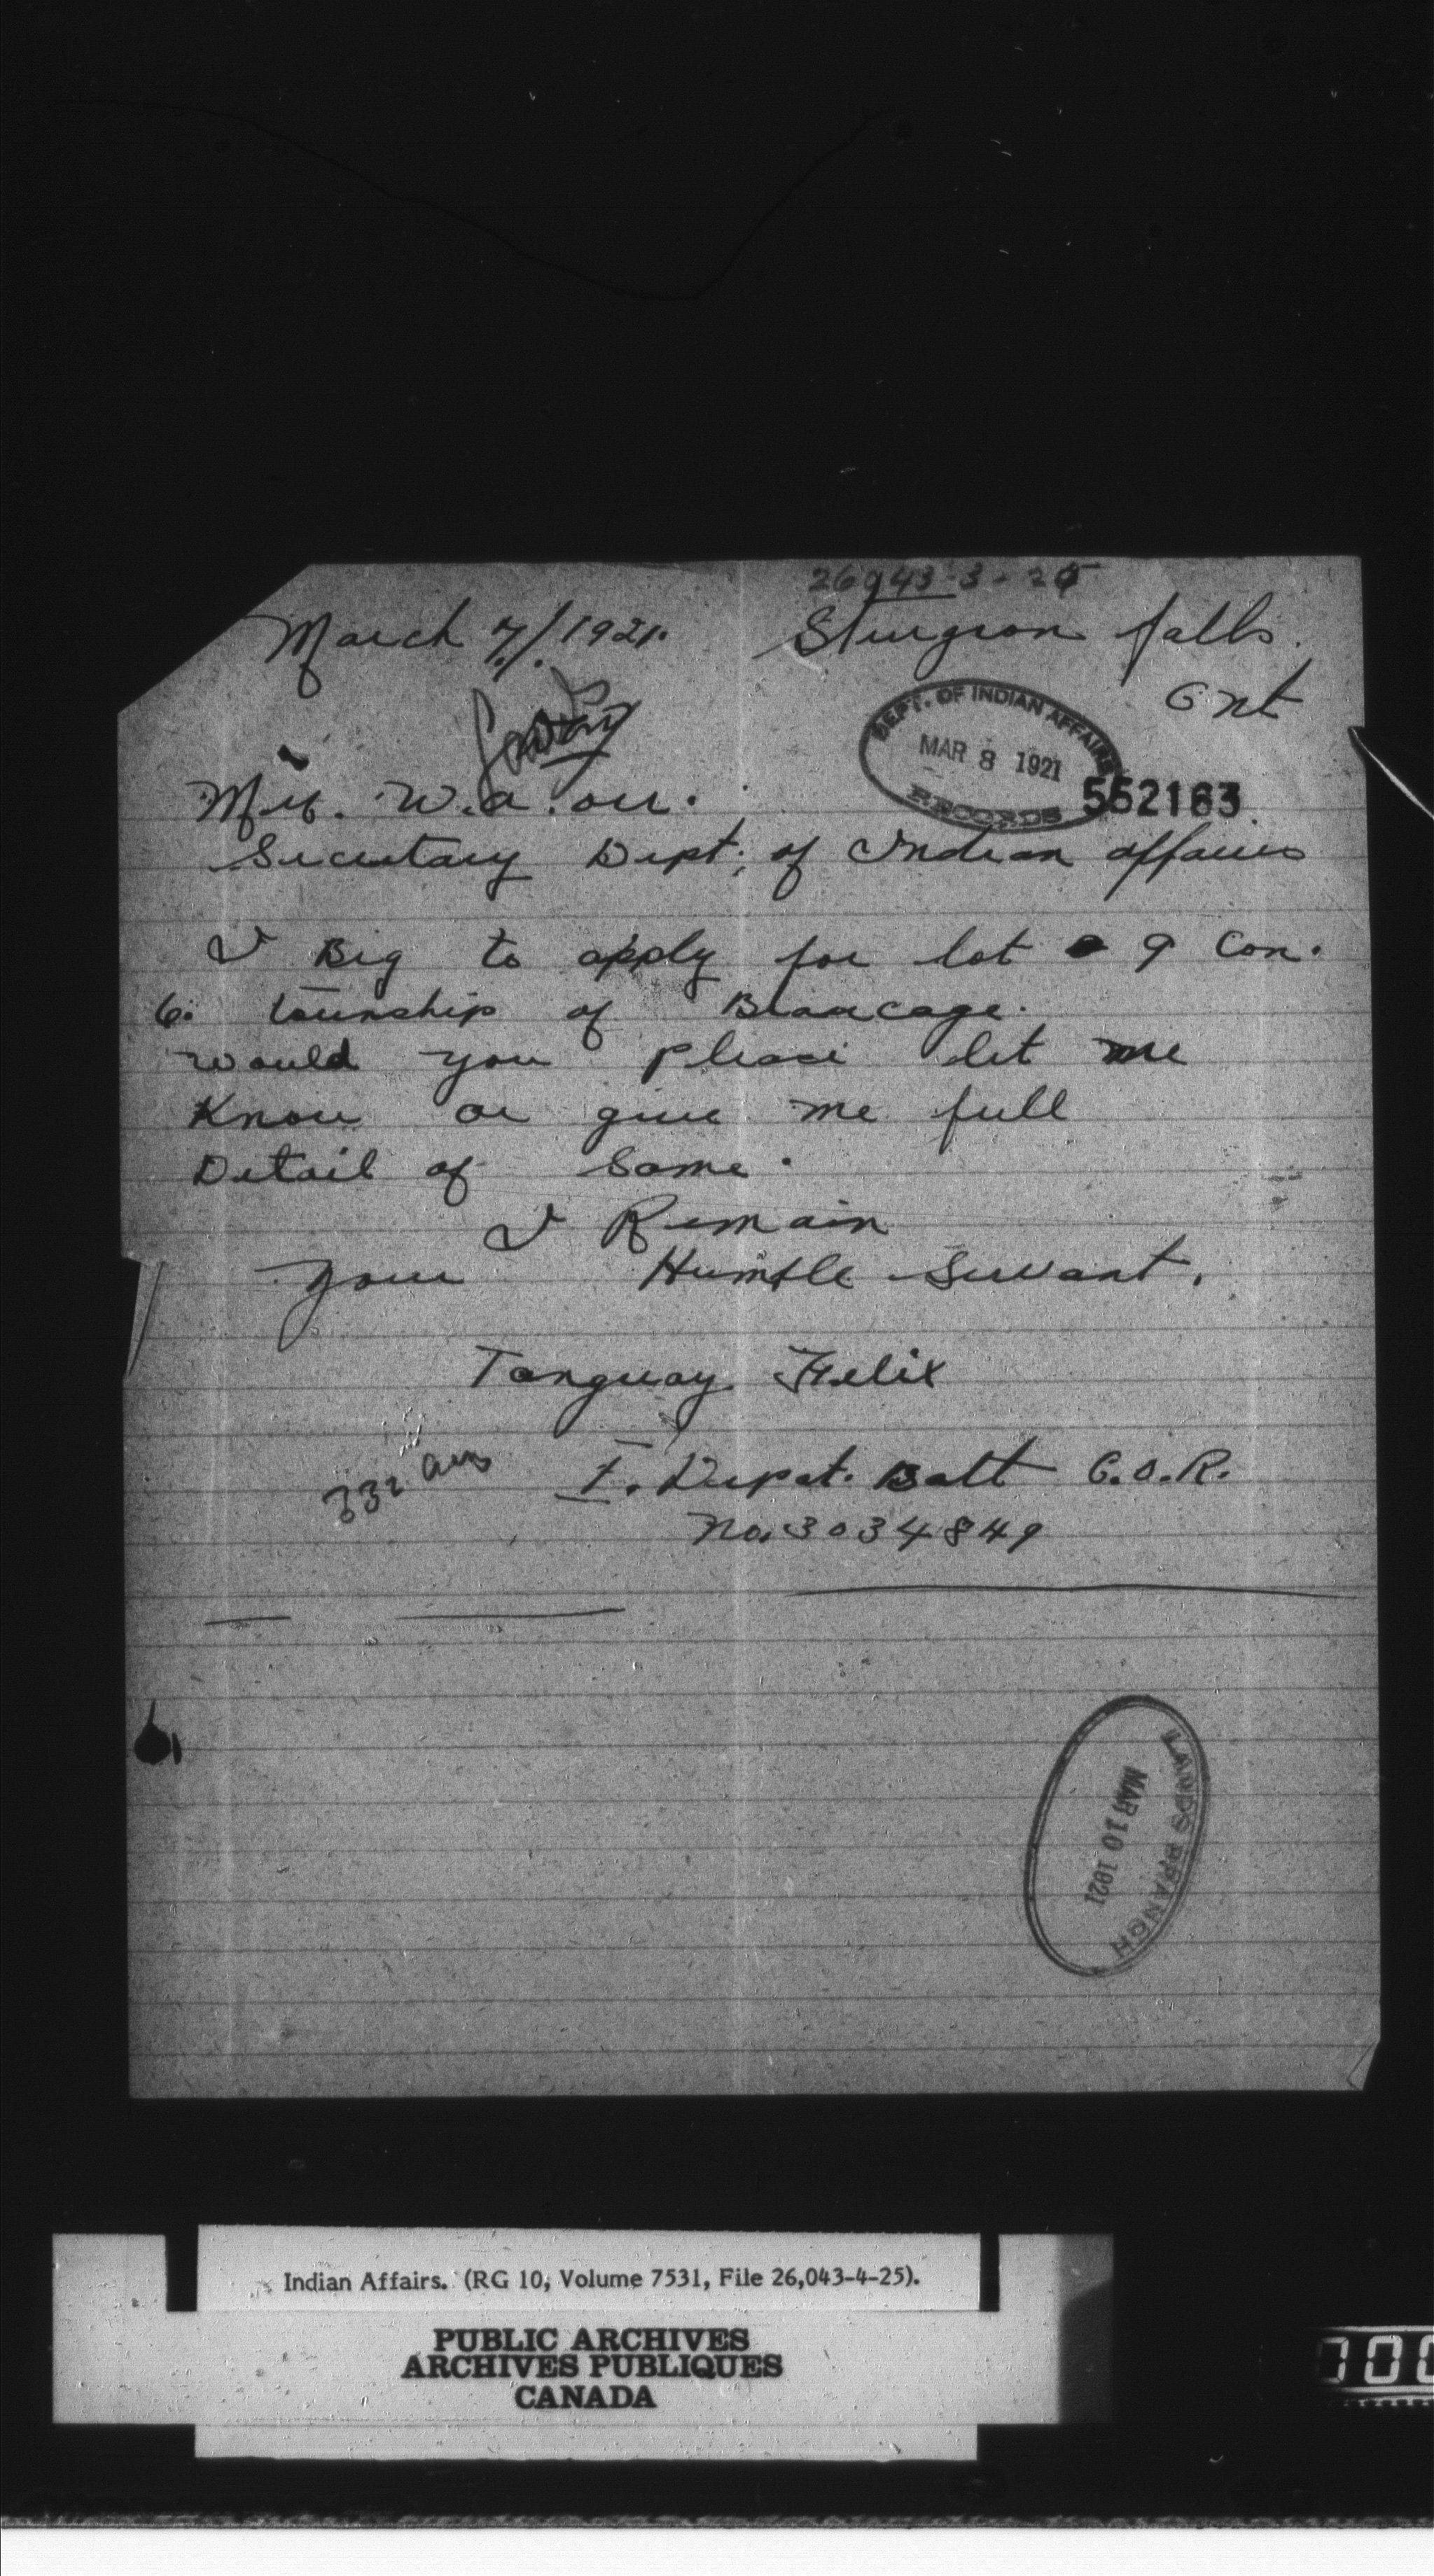 March 7/. 1921. Sturgeon falls.
Ont
DEPT. OF INDIAN AFFAIRS
MAR 8 1921
RECORDS
552163
W. a. orr.
Secretary Dept; of Indian affairs
I Beg to apply for lot 9 Con.
6. township of Beaucage.
would you please let me
Know or give me full
Detail of Same.
I Remain
your Humble Servant.
Tanguay Felix
1. Depot. Batt C.O.R.
No. 3034849
332 acres
LANDS BRANCH
MAR 10 1921
Indian Affairs. (RG 10, Volume 7531, File 26,043-4-25).
PUBLIC ARCHIVES
ARCHIVES PUBLIQUES
CANADA